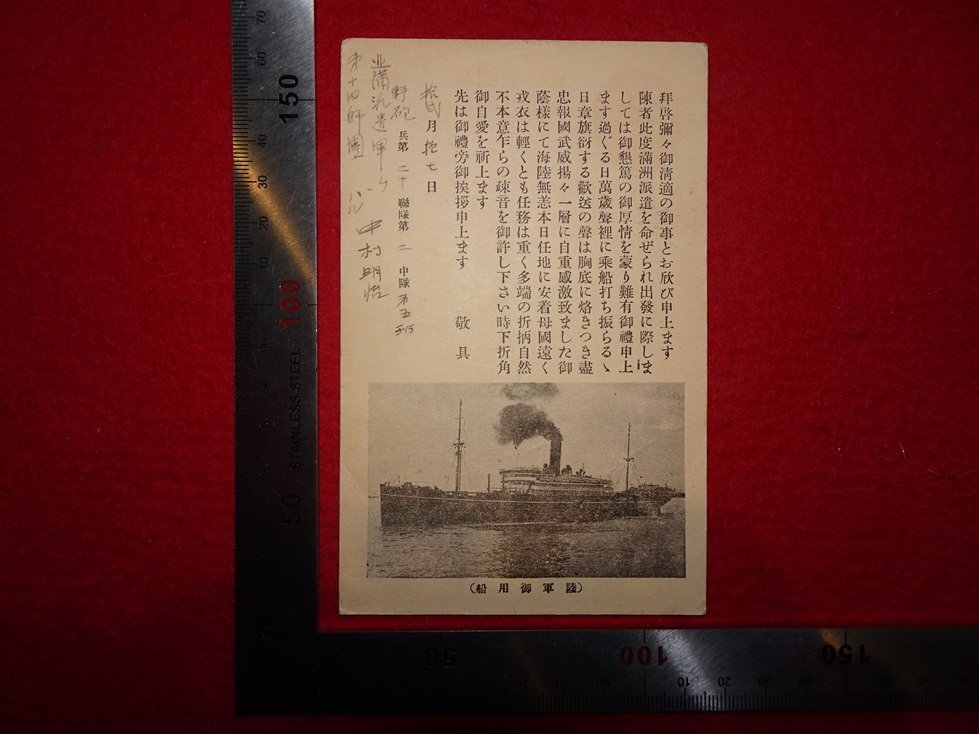 拜啓彌々御淸適の御事とお欣び申上ます
陳者此度滿洲派遣を命ぜられ出發に際しま
しては御懇篤の御厚情を蒙り難有御禮申上
ます過ぐる日萬歲聲裡に乘船打ち振らるゝ
日章旗衍する歡送の聲は胸底に烙きつき盡
忠報國武威揚々一層に自重感激致ました御
蔭樣にて海陸無恙本日任地に安着母國遠く
戎衣は輕くとも任務は重く多端の折柄自然
不本意乍らの疎音を御許し下さい時下折角
御自愛を祈上ます
先は御禮旁御挨拶申上ます 敬具
拾弐月拾七日
野砲兵第二十聯隊第二中隊第五
北滿派遣軍
第十四師團 中村
(陸軍御用船)
150
100
50
STAINLESS STEEL
70
60
40
30
20
10
50
100
150